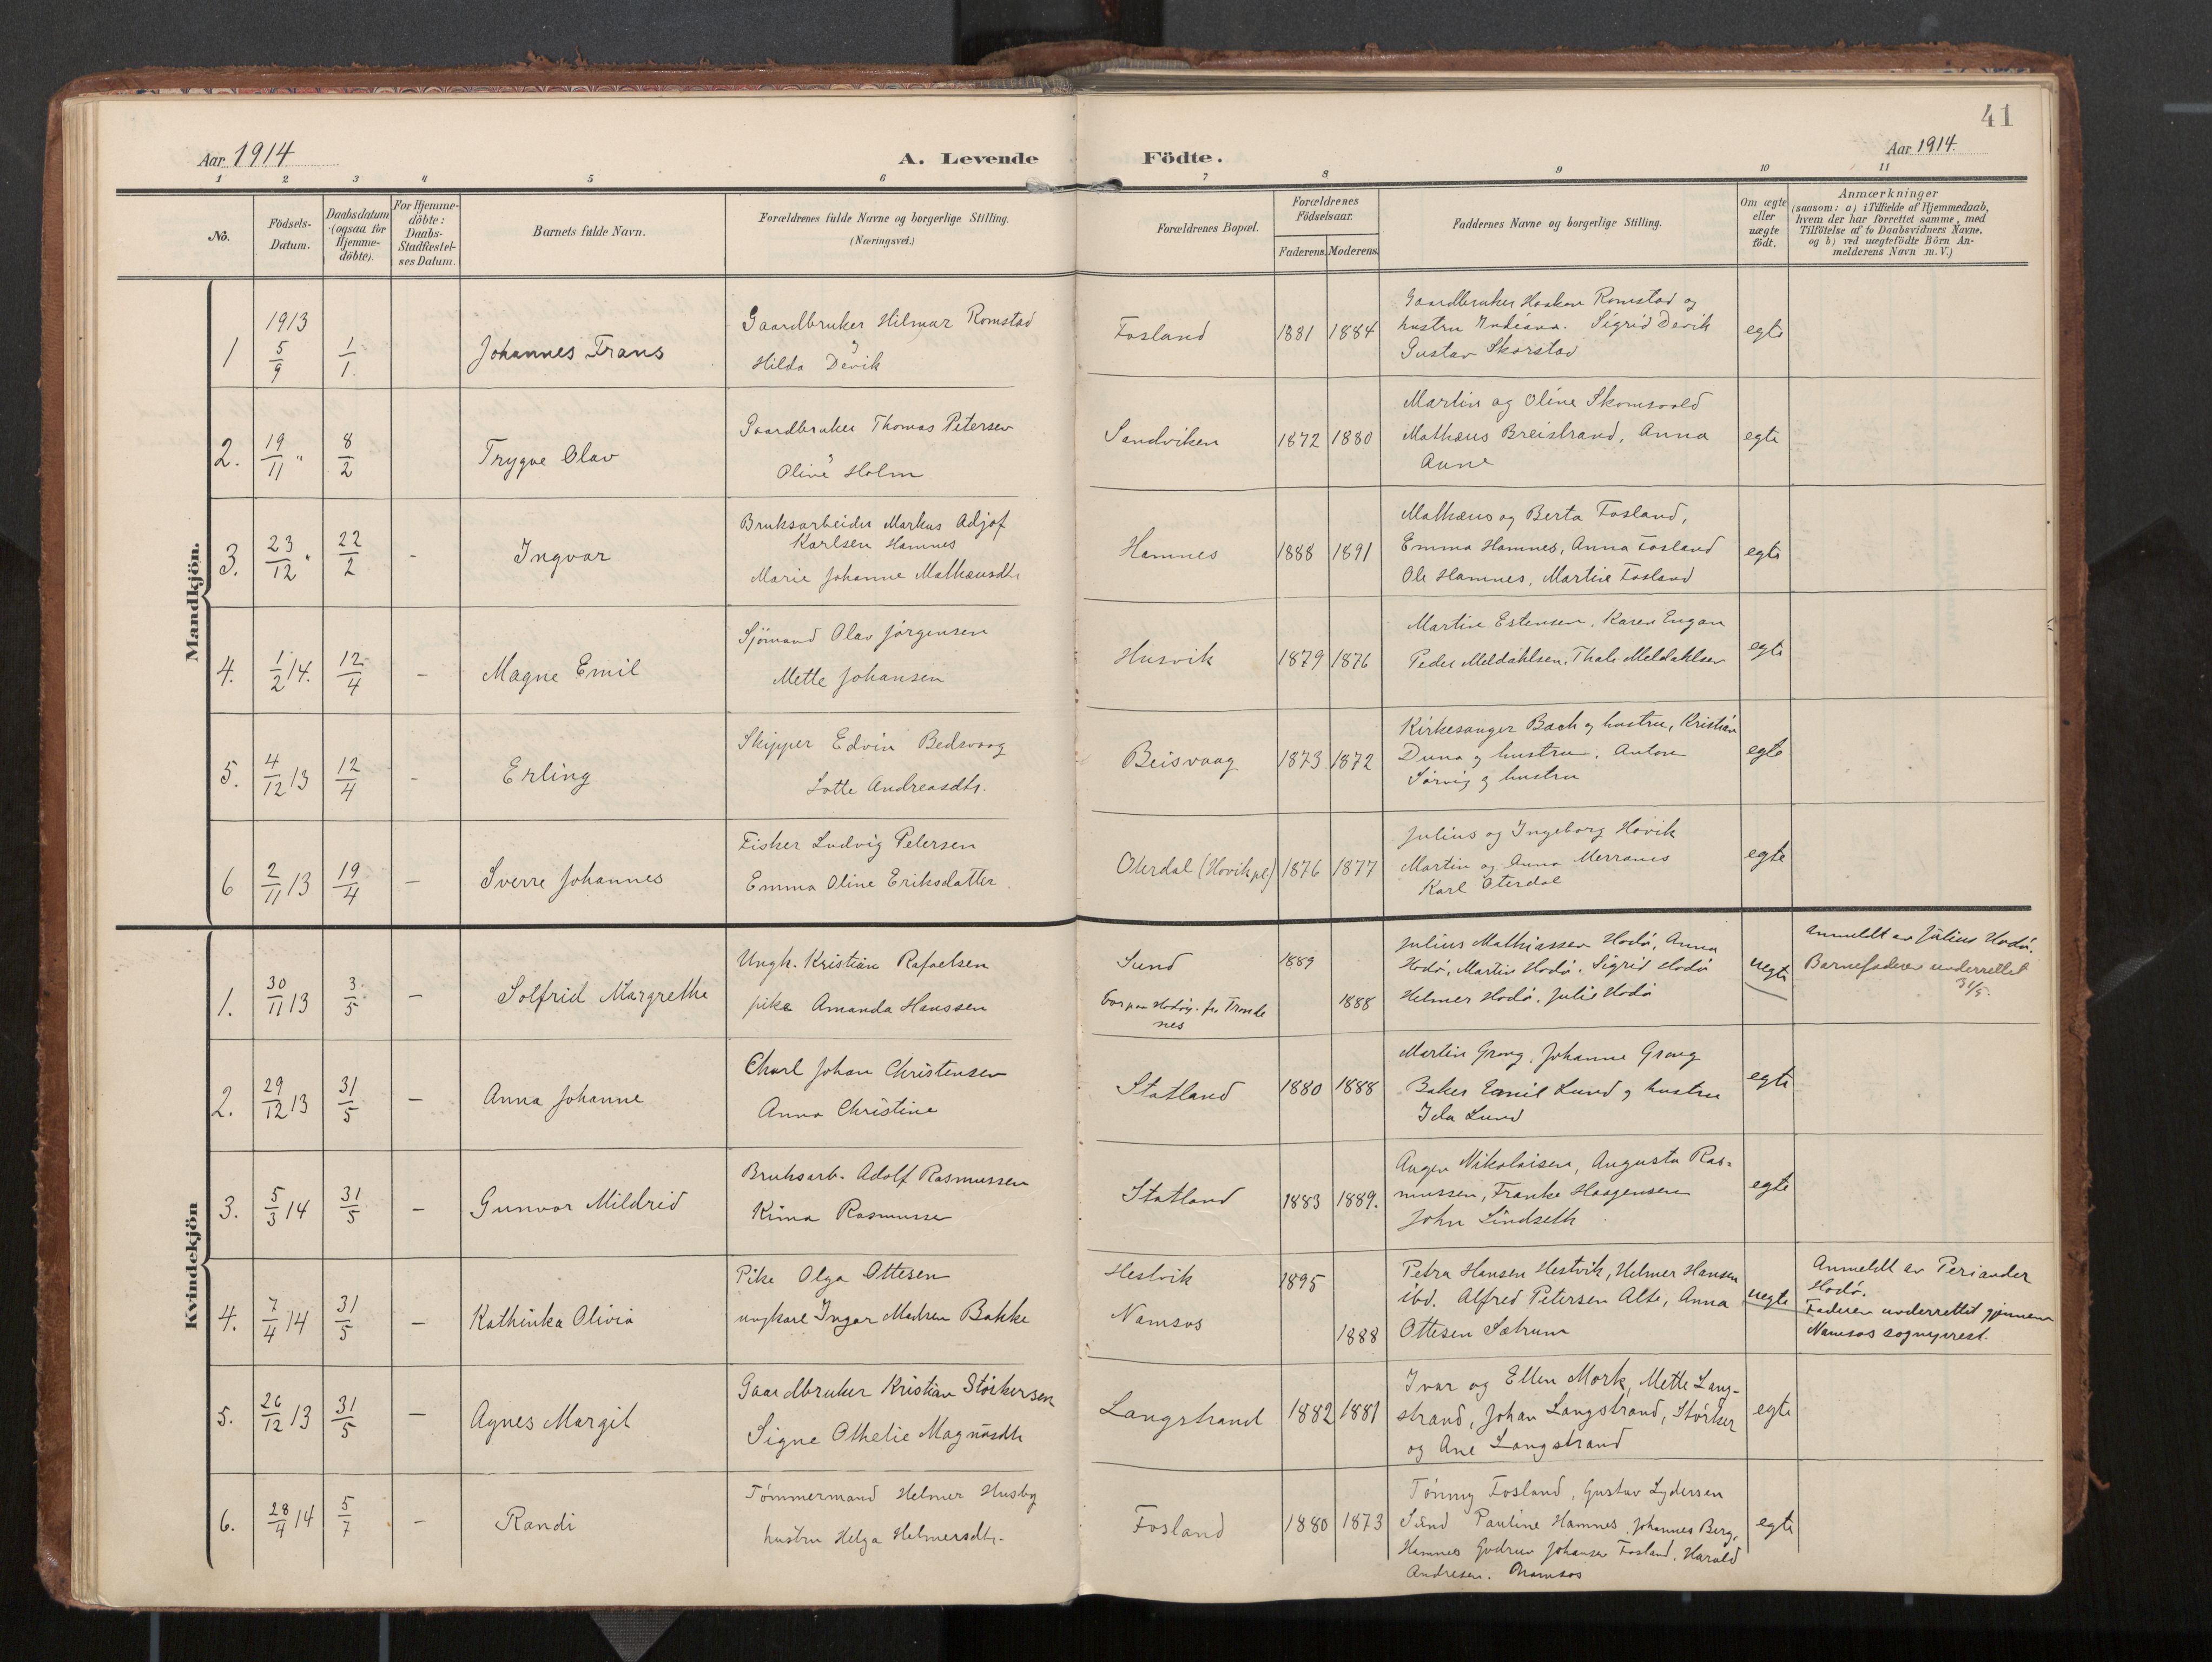 41
Aar 1914
A. Levende Födte.
Aar 1914.
1 2 3 4 5 6 7 8 9 10 11
No.
Födsels-
Datum.
Daabsdatum
(ogsaa for
Hjemme-
döbte).
For Hjemme-
döbte:
Daabs-
Stadfæstel-
ses Datum.
Barnets fulde Navn.
Forældrenes fulde Navne og borgerlige Stilling.
(Næringsvei.)
Forældrenes Bopæl.
Forældrenes
Födselsaar.
Faderens. Moderens.
Faddernes Navne og borgerlige Stilling.
Om ægte
eller
uægte
födt.
Anmærkninger
(saasom: a) i Tilfælde af Hjemmedaab,
hvem der har forrettet samme, med
Tilföielse af to Daabsvidners Navne,
og b) ved uægtefödte Börn An-
melderens Navn m. V.)
Mandkjön.
1
1913
5/9
1/1.
Johannes Frans
Gaardbruker Hilmar Romstad
Hilda Devik
Fosland
1881 1884
Gaardbruker Haakon Romstad og
hustru Indiana. Sigrid Devik
Gustav Skorstad
egte
2.
19/11 "
8/2
Trygve Olav
Gaardbruker Thomas Petersen
Oline Holm
Sandviken
1872 1880
Martin og Oline Skomsvold
Mathæus Breistrand, Anna
Aune
egte
3.
23/12 "
22/2
-
Ingvar
Bruksarbeider Markus Adjof
Karlsen Hamnes
Marie Johanne Mathæusdtr
Hamnes
1888 1891
Mathæus og Berta Fosland,
Emma Hamnes, Anna Fosland
Ole Hamnes, Martine Fosland
egte
4.
1/2 14.
12/4
-
Magne Emil
Sjömand Olav Jörgensen
Mette Johansen
Husvik
1879 1876
Martin Estensen, Karen Engan
Peder Meldahlsen, Thale Meldahlsen
egte
5.
4/12 13
12/4
-
Erling
Skipper Edvin Bedsvaag
Lotte Andreasdtr.
Beisvaag
1873 1872
Kirkesanger Bach og hustru, Kristian
Duna og hustru, Anton
Sörvig og hustru
egte
6
2/11 13
19/4
-
Sverre Johannes
Fisker Ludvig Petersen
Emma Oline Eriksdatter
Oterdal (Hovik pl)
1876 1877
Julius og Ingeborg Hövik
Martin og Anna Merranes
Karl Oterdal
egte
Kvindekjön
1.
30/11 13
3/5
-
Solfrid Margrethe
Ungk. Kristian Rafaelsen
pike Amanda Hanssen
Sund
1889
1888
nes
Julius Mathiassen Hodö, Anna
Hodö, Martin Hodö, Sigrid Hodö
Helmer Hodö, Julie Hodö
uegte
Anmeldt av Julius Hodö.
Barnefaderen underrettet
31/5.
2.
29/12 13
31/5
-
Anna Johanne
Charl Johan Christensen
Anna Christine
Statland
1880 1888
Martin Grong, Johanne Grong
Baker Emil Lund og hustru
Ida Lund
egte
3.
5/3 14
31/5
-
Gunvor Mildrid
Bruksarb. Adolf Rasmussen
Kima Rasmussen
Statland
1883 1889.
Nikolaisen, Augusta Ras-
mussen, Franke Haagensen
John Lindseth
egte
4.
7/4 14
31/5
-
Kathinka Olivia
Pike Olga Ottesen
ungkarl Ingar Madsen Bakke
Hestvik
Namsos
1895
1888
Petra Hansen Hestvik, Helmer Hansen
ibd. Alfred Petersen Alte, Anna
Ottesen Sætrum
uegte
Anmeldt av Periander
Hodö.
Faderen underrettet gjennem
Namsos sogneprest.
5.
26/12 13
31/5
-
Agnes Margit
Gaardbruker Kristian Störkersen
Signe Othelie Magnusdtr
Langstrand
1882 1881
Ivar og Ellen Mork, Mette Lang-
strand, Johan Langstrand, Störker
og Ane Langstrand
egte
6.
28/4 14
5/7
-
Randi
Tömmermand Helmer Husby
hustru Helga Helmersdtr.
Fosland
1880 1873
Tömmy Fosland, Gustav Lydersen
Sund Pauline Hamnes, Johannes Berg,
Hamnes Gudrun Johansen Fosland. Harald
Andresen. Namsos
egte